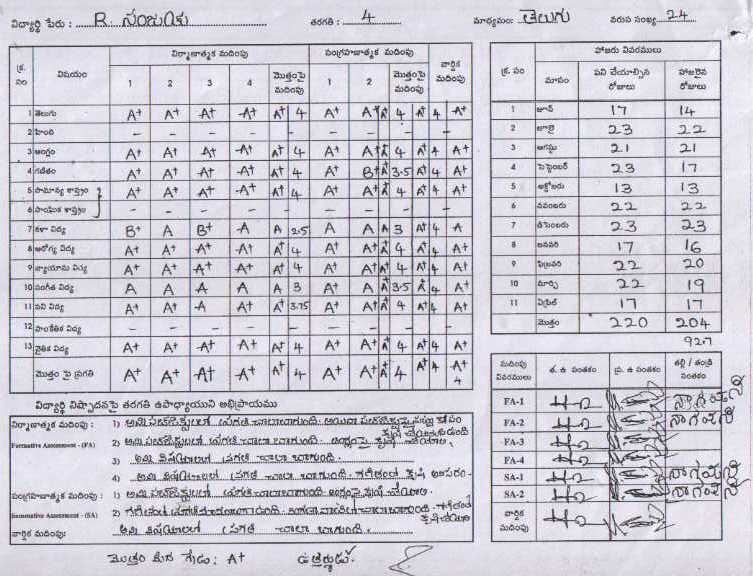 విద్యార్థి పేరు : R. సంజూకు తరగతి : 4 మాధ్యమం: తెలుగు వరుస సంఖ్య 24
క్ర. సం విషయం నిర్మాణాత్మక మదింపు సంగ్రహణాత్మక మదింపు వార్షిక మదింపు
1 2 3 4 మొత్తంపై మదింపు 1 2 మొత్తంపై మదింపు
1 తెలుగు A+ A+ A+ A+ A+ 4 A+ A+ A+ 4 A+ 4 A+
2 హింది – – – – – – – – – – – –
3 ఆంగ్లం A+ A+ A+ A+ A+ 4 A+ A+ A+ 4 A+ 4 A+
4 గణితం A+ A+ A+ A+ A+ 4 A+ B+ A+ 3.5 A+ 4 A+
5 సామాన్య శాస్త్రం A+ A+ A+ A+ A+ 4 A+ A+ A+ 4 A+ 4 A+
6 సాంఘిక శాస్త్రం – – – – – – – – – – – –
7 కళా విద్య B+ A B+ A A 2.5 A A A 3 A+ 4 A
8 ఆరోగ్య విద్య A+ A+ A+ A+ A+ 4 A+ A+ A+ 4 A+ 4 A+
9 వ్యాయామ విద్య A+ A+ A+ A+ A+ 4 A+ A+ A+ 4 A+ 4 A+
10 సంగీత విద్య A A A A A 3 A A A+ 3.5 A+ 4 A
11 పని విద్య A+ A+ A A+ A+ 3.75 A+ A+ A+ 4 A+ 4 A+
12 సాంకేతిక విద్య – – – – – – – – – –
13 నైతిక విద్య A+ A+ A+ A+ A+ 4 A+ A+ A+ 4 A+ 4 A+
మొత్తం పై ప్రగతి A+ A+ A+ A+ A+ 4 A+ A+ A+ 4 A+ 4 A+ 4
హాజరు వివరములు
క్ర. సం మాసం పని చేయాల్సిన రోజులు హాజరైన రోజులు
1 జూన్ 17 14
2 జూలై 23 22
3 ఆగస్టు 21 21
4 సెప్టెంబర్ 23 17
5 అక్టోబరు 13 13
6 నవంబరు 22 22
7 డిసెంబరు 23 23
8 జనవరి 17 16
9 ఫిబ్రవరి 22 20
10 మార్చి 22 19
11 ఏప్రిల్ 17 17
మొత్తం 220 204
927
మదింపు వివరములు త. ఉ సంతకం ప్ర. ఉ సంతకం తల్లి / తండ్రి సంతకం
FA-1
FA-2
FA-3
FA-4
SA-1
SA-2
వార్షిక మదింపు
విద్యార్థి నిష్పాదనపై తరగతి ఉపాధ్యాయుని అభిప్రాయము
నిర్మాణాత్మక మదింపు : 1) అన్ని సబ్జెక్టులలో ప్రగతి చాలా బాగుంది.
Formative Assessment - (FA) 2) అన్ని సబ్జెక్టులలో ప్రగతి చాలా బాగుంది. ఆంగ్లంపై కృషి చేయాలి.
3) అన్ని విషయాలలో ప్రగతి చాలా బాగుంది.
4) అన్ని విషయాలలో ప్రగతి చాలా బాగుంది. గణితంలో కృషి అవసరం.
సంగ్రహణాత్మక మదింపు : 1) అన్ని సబ్జెక్టులలో ప్రగతి చాలా బాగుంది ఆంగ్లంపై కృషి చేయాలి
Summative Assessment - (SA) 2)
వార్షిక మదింపు: అన్ని విషయాలలో ప్రగతి చాలా బాగుంది.
మొత్తం మీద గ్రేడు: A+ ఉత్తీర్ణుడు.